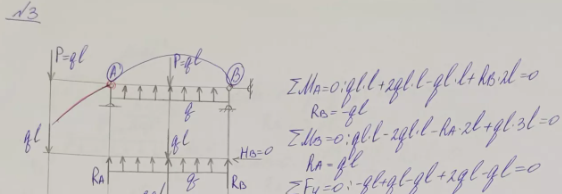 №3
P=ql
A
P=ql
B
q
ql
ql
H_B=0
R_A
q
R_B
ΣM_A=0: ql·l+2ql·l-ql·l+R_B·2l=0
R_B=-ql
ΣM_B=0: ql·l-2ql·l-R_A·2l+ql·3l=0
R_A=ql
ΣF_y=0: -ql+ql-ql+2ql-ql=0